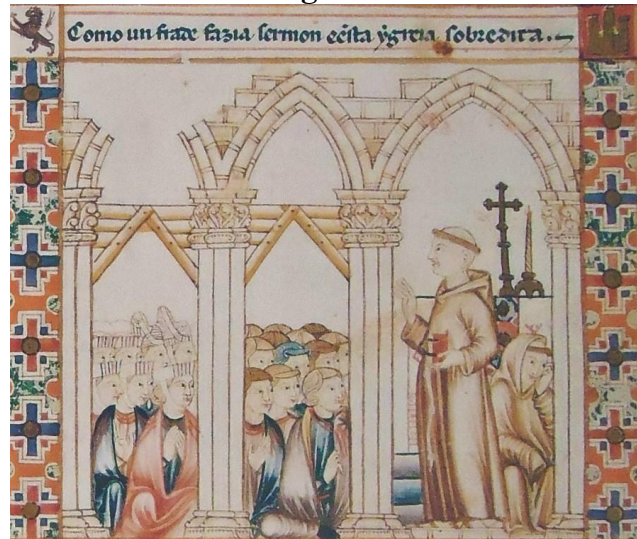 Como un frade fazia sermon eẽsta ẏgreia sobredita.